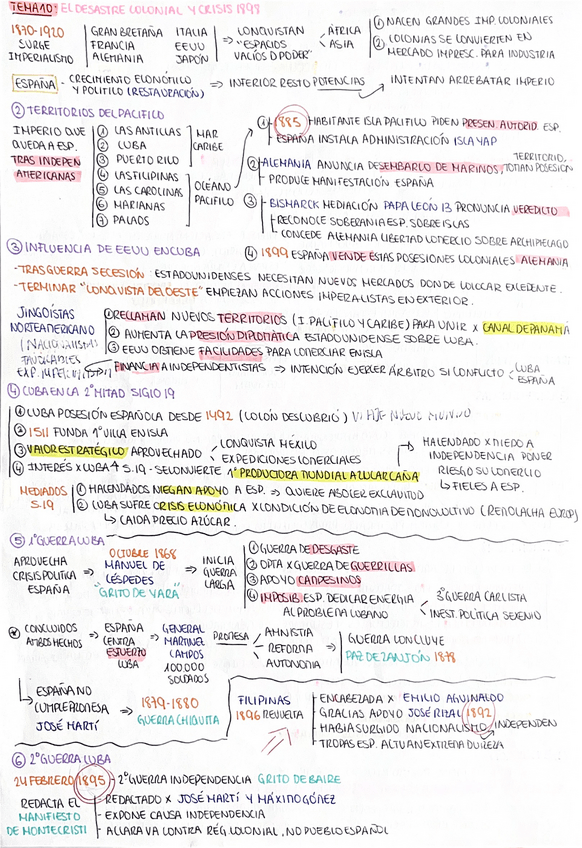 TEMA 10: EL DESASTRE COLONIAL Y CRISIS 1898
1870-1920 SURGE IMPERIALISMO
GRAN BRETAÑA FRANCIA ALEMANIA
ITALIA EEUU JAPÓN
⇒ CONQUISTAN "ESPACIOS VACÍOS D PODER"
ÁFRICA
ASIA
① NACEN GRANDES IMP. COLONIALES
② COLONIAS SE CONVIERTEN EN MERCADO IMPRESC. PARA INDUSTRIA
ESPAÑA - CRECIMIENTO ECONÓTICO Y POLITICO (RESTAURACIÓN) ⇒ INTERIOR RESTO POTENCIAS → INTENTAN ARREBATAR IMPERIO
② TERRITORIOS DEL PACIFICO
IMPERIO QUE QUEDA A ESP. TRAS INDEPEN AMERICANAS
① LAS ANTILLAS
② CUBA
③ PUERTO RICO
MAR CARIBE
④ LAS FILIPINAS
⑤ LAS CAROLINAS
⑥ MARIANAS
⑦ PALAOS
OCÉANO PACIFICO
① 1885 HABITANTE ISLA PACIFICO PIDEN PRESEN. AUTORID ESP.
ESPAÑA INSTALA ADMINISTRACIÓN ISLA YAP
② ALEMANIA ANUNCIA DESEMBARCO DE MARINOS, TOTIAN POSESION TERRITORIO.
PRODUCE MANIFESTACIÓN ESPAÑA
③ BISMARCK MEDIACIÓN PAPA LEÓN 13 PRONUNCIA VEREDICTO
RECONOCE SOBERANIA ESP. SOBRE ISLAS
CONCEDE ALEMANIA LIBERTAD COMERCIO SOBRE ARCHIPIELAGO
④ 1899 ESPAÑA VENDE ESTAS POSESIONES COLONIALES ALEMANIA
③ INFLUENCIA DE EEUU EN CUBA
- TRAS GUERRA SECESIÓN ESTADOUNIDENSES NECESITAN NUEVOS MERCADOS DONDE COLOCAR EXCEDENTE.
- TERMINAR "CONQUISTA DEL OESTE" EMPIEZAN ACCIONES IMPERALISTAS EN EXTERIOR.
JINGOÍSTAS NORTEAMERICANO
① RECLAMAN NUEVOS TERRITORIOS (I. PACIFICO Y CARIBE) PARA UNIR X CANAL DE PANAMA
② AUMENTA LA PRESIÓN DIPLOMÁTICA ESTADOUNIDENSE SOBRE CUBA.
③ EEUU OBTIENE FACILIDADES PARA COMERCIAR EN ISLA
FINANCIA A INDEPENDENTISTAS ⇒ INTENCIÓN EJERCER ÁRBITRO SI CONFLICTO
CUBA
ESPAÑA
④ CUBA EN LA 2ª MITAD SIGLO 19
① CUBA POSESIÓN ESPAÑOLA DESDE 1492 (COLÓN DESCUBRIÓ)
② 1511 FUNDA 1ª VILLA EN ISLA
③ VALOR ESTRATÉGICO APROVECHADO
CONQUISTA MÉXICO
EXPEDICIONES COMERCIALES
④ INTERÉS X CUBA ↑ S.19 - SE CONVIERTE 1ª PRODUCTORA MUNDIAL AZUCAR CAÑA
HACENDADO X MIEDO A INDEPENDENCIA PONER RIESGO SU COMERCIO
↳ FIELES A ESP.
MEDIADOS S.19
① HACENDADOS NIEGAN APOYO A ESP. ⇒ QUIERE ABOLER ESCLAVITUD
② CUBA SUFRE CRISIS ECONÓMICA X CONDICIÓN DE ECONOMIA DE MONOCULTIVO (REMOLACHA EUROP)
↳ CAIDA PRECIO AZÚCAR.
⑤ 1ª GUERRA CUBA
APROVECHA CRISIS POLÍTICA ESPAÑA
⇒ OCTUBRE 1868 MANUEL DE CÉSPEDES "GRITO DE YARA"
⇒ INICIA GUERRA LARGA
① GUERRA DE DESGASTE
② DTA X GUERRA DE GUERRILLAS
③ APOYO CAMPESINOS
④ IMPOSIB. ESP. DEDICAR ENERGIA AL PROBLEMA CUBANO
3ª GUERRA CARLISTA
INEST. POLÍTICA SEXENIO
CONCLUIDOS AMBOS HECHOS
⇒ ESPAÑA CENTRA ESFUERZO CUBA
⇒ GENERAL MARTINEZ CAMPOS 100.000 SOLDADOS
PROMESA
AMNISTIA
REFORMA
AUTONOMIA
⇒ GUERRA CONCLUYE PAZ DE ZANJÓN 1878
ESPAÑA NO CUMPLE PROMESA JOSÉ MARTÍ
⇒ 1879-1880 GUERRA CHIQUITA
FILIPINAS 1896 REVUELTA
ENCABEZADA X EMILIO AGUINALDO
GRACIAS APOYO JOSÉ RIZAL 1892
HABÍA SURGIDO NACIONALISMO INDEPENDEN
TROPAS ESP. ACTUAN EXTREMA DUREZA
⑥ 2ª GUERRA CUBA
24 FEBRERO 1895 - 2ª GUERRA INDEPENDENCIA GRITO DE BAIRE
REDACTA EL MANIFIESTO DE MONTECRISTI
REDACTADO X JOSÉ MARTÍ Y MÁXIMO GÓMEZ
EXPONE CAUSA INDEPENDENCIA
ACLARA VA CONTRA RÉG. COLONIAL, NO PUEBLO ESPAÑOL